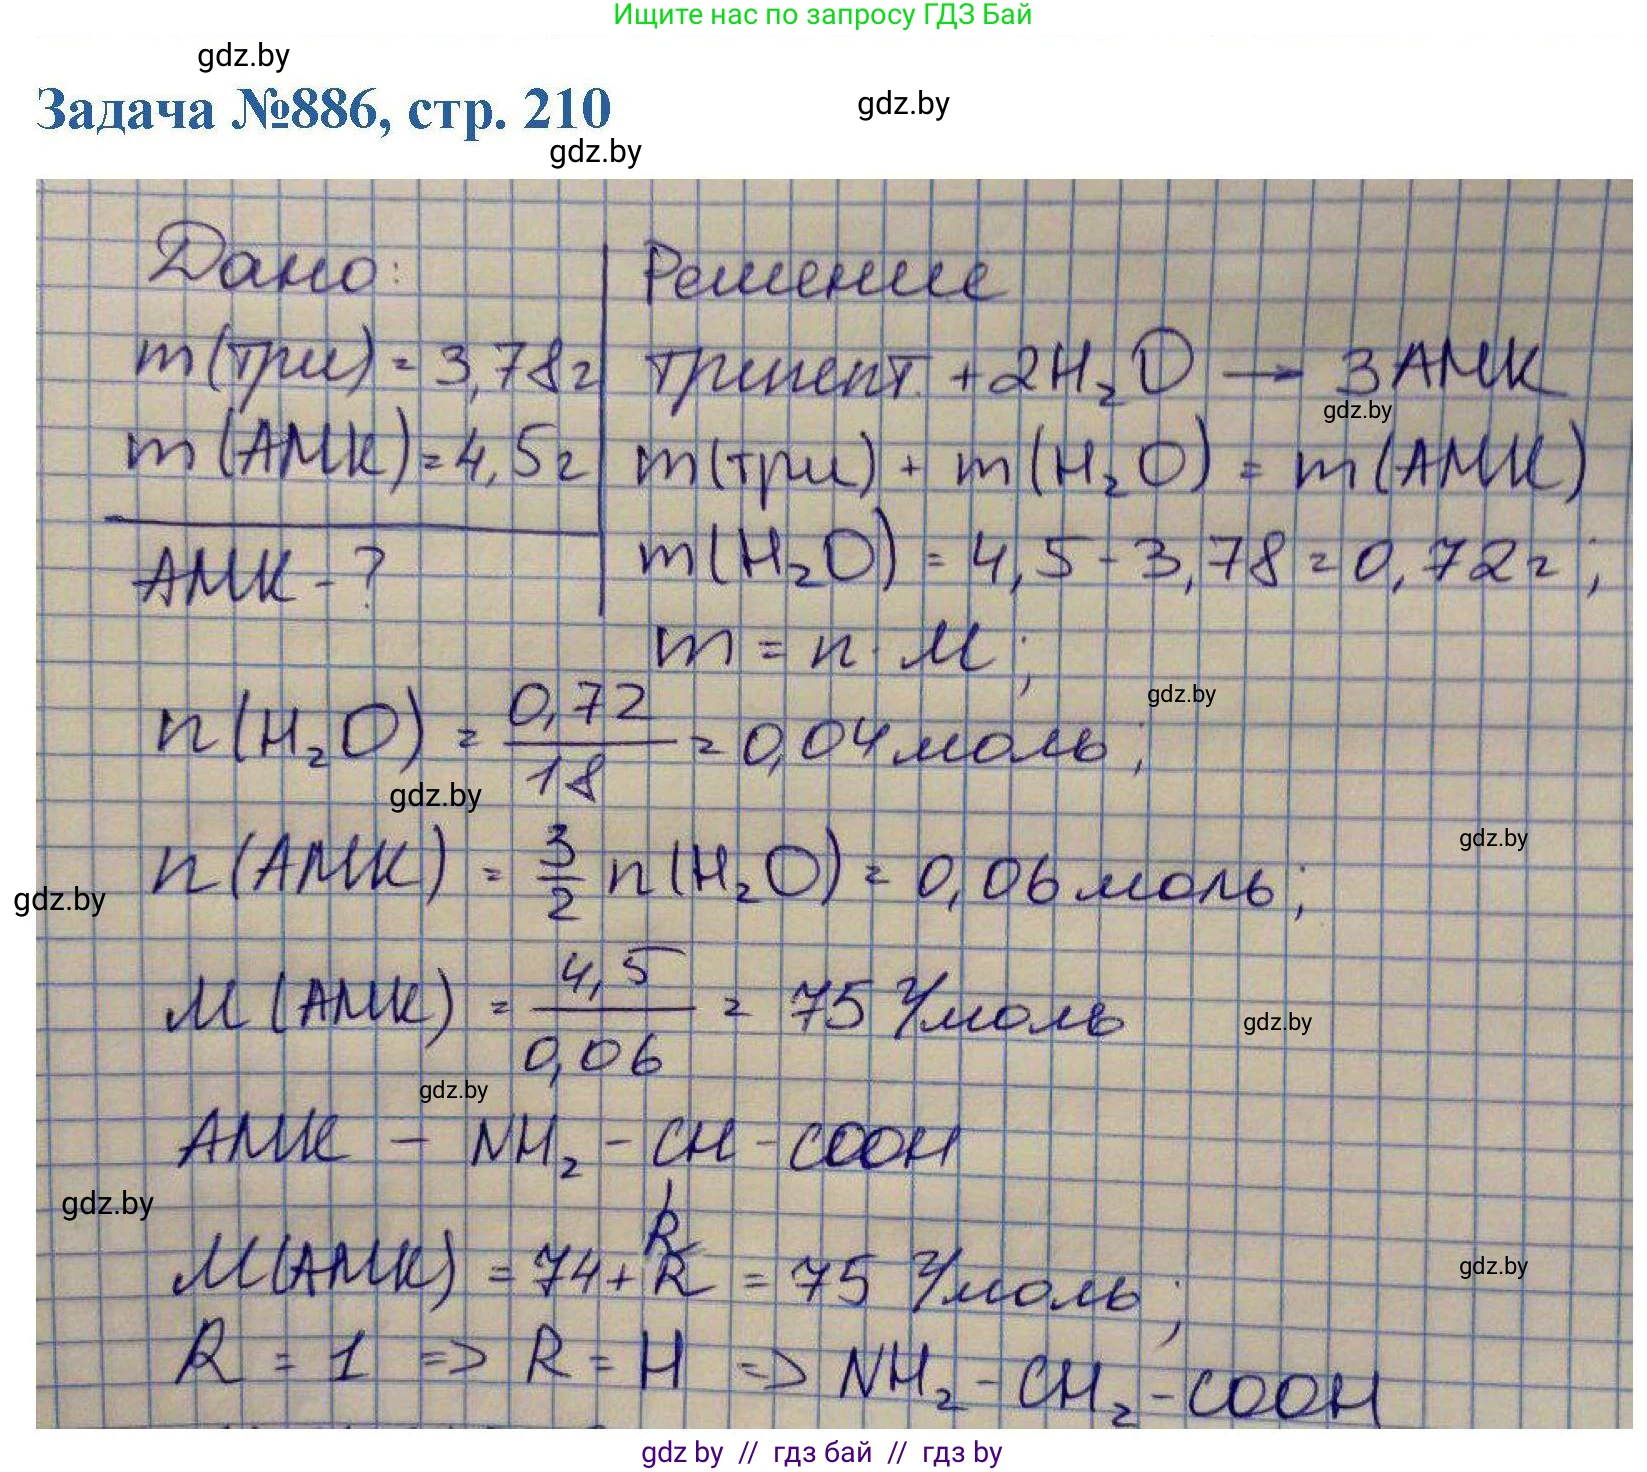 Ищите нас по запросу ГДЗ Бай
gdz.by
Задача №886, стр. 210
gdz.by
gdz.by
Дано:
m(три) = 3,78г
m(АМК) = 4,5г
АМК - ?
Решение
трипепт. + 2H₂O → 3АМК
gdz.by
m(три) + m(H₂O) = m(АМК)
m(H₂O) = 4,5 - 3,78 = 0,72г;
m = n · M;
gdz.by
n(H₂O) = 0,72/18 = 0,04 моль;
gdz.by
gdz.by
n(АМК) = 3/2 n(H₂O) = 0,06 моль;
gdz.by
M(АМК) = 4,5/0,06 = 75 г/моль
gdz.by
gdz.by
АМК - NH₂ - CH - COOH
R
gdz.by
M(АМК) = 74 + R = 75 г/моль;
gdz.by
R = 1 => R = H => NH₂ - CH₂ - COOH
gdz by // гдз бай // гдз by